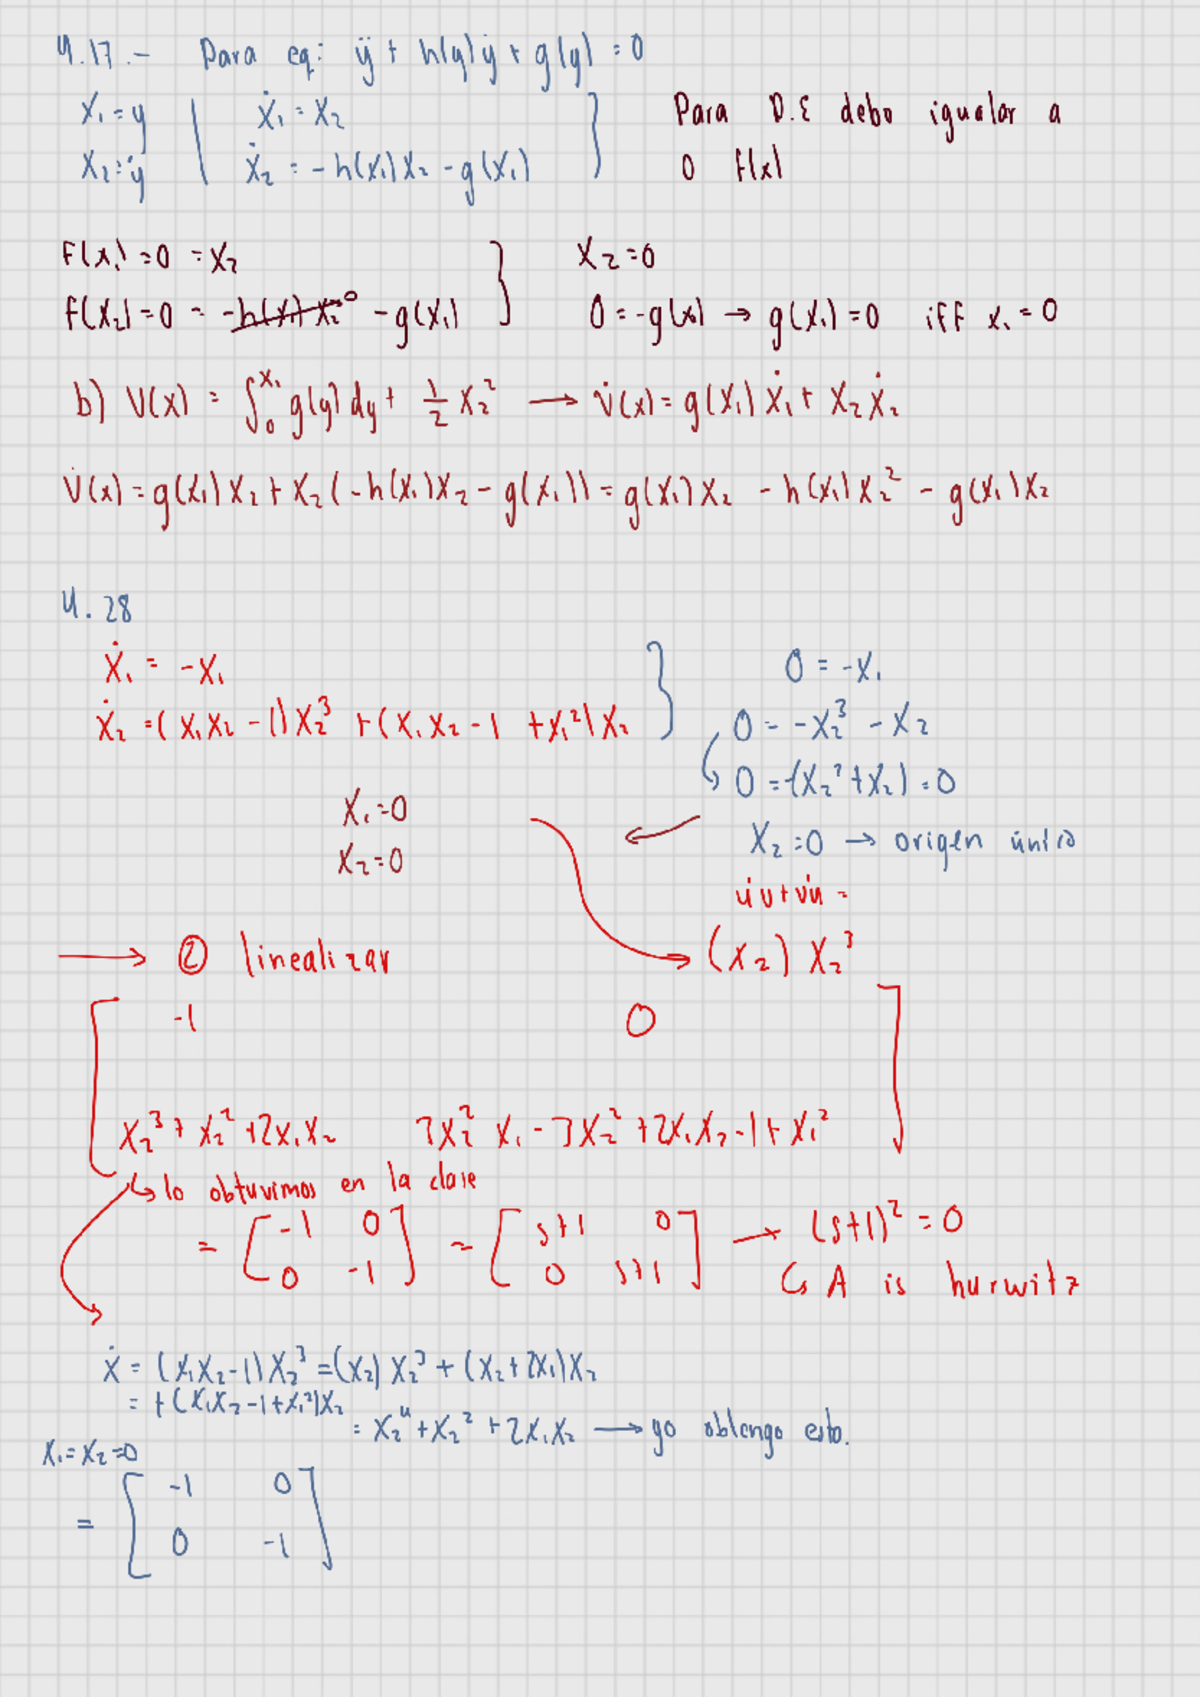 4.17.- Para eq: ÿ + h(y)ẏ + g(y) = 0
x₁ = y | ẋ₁ = x₂ } Para D.E debo igualar a
x₂ = ẏ | ẋ₂ = -h(x₁)x₂ - g(x₁) 0 f(x)
F(x₁) = 0 = x₂ } x₂ = 0
f(x₂) = 0 = -h(x₁)x₂⁰ - g(x₁) 0 = -g(x₁) → g(x₁) = 0 iff x₁ = 0
b) V(x) = ∫₀^x₁ g(y) dy + 1/2 x₂² → V̇(x) = g(x₁)ẋ₁ + x₂ẋ₂
V̇(x) = g(x₁)x₂ + x₂(-h(x₁)x₂ - g(x₁)) = g(x₁)x₂ - h(x₁)x₂² - g(x₁)x₂
4.28
ẋ₁ = -x₁ } 0 = -x₁
ẋ₂ = (x₁x₂ - 1)x₂³ + (x₁x₂ - 1 + x₁²)x₂ 0 = -x₂³ - x₂
↳ 0 = -(x₂³ + x₂) = 0
x₁ = 0
x₂ = 0 ← x₂ = 0 → origen único
u̇v + v̇u =
→ ② linealizar → (x₂) x₂³
[ -1 0
x₂³ + x₂² + 2x₁x₂ 3x₂² x₁ - 3x₂² + 2x₁x₂ - 1 + x₁² ]
↳ lo obtuvimos en la clase
= [ -1 0 = [ s+1 0 → (s+1)² = 0
0 -1 ] 0 s+1 ] ↳ A is hurwitz
ẋ = (x₁x₂-1)x₂³ = (x₂) x₂³ + (x₂ + 2x₁)x₂
= + (x₁x₂ - 1 + x₁²)x₂
= x₂⁴ + x₂² + 2x₁x₂ → yo obtengo esto.
x₁ = x₂ = 0
= [ -1 0
0 -1 ]